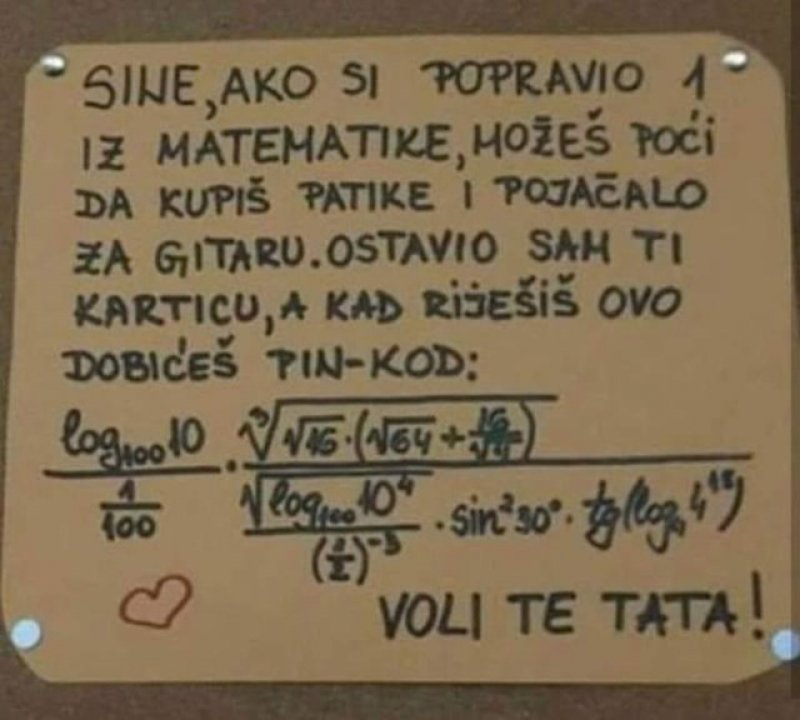 SINE, AKO SI POPRAVIO 1
IZ MATEMATIKE, MOŽEŠ POĆI
DA KUPIŠ PATIKE I POJAČALO
ZA GITARU. OSTAVIO SAM TI
KARTICU, A KAD RIJEŠIŠ OVO
DOBIĆEŠ PIN-KOD:
log₁₀₀10 · ³√(√16·(√64+
1/100 √log₁₀₀10⁴ · sin²30° · tg(log
VOLI TE TATA!